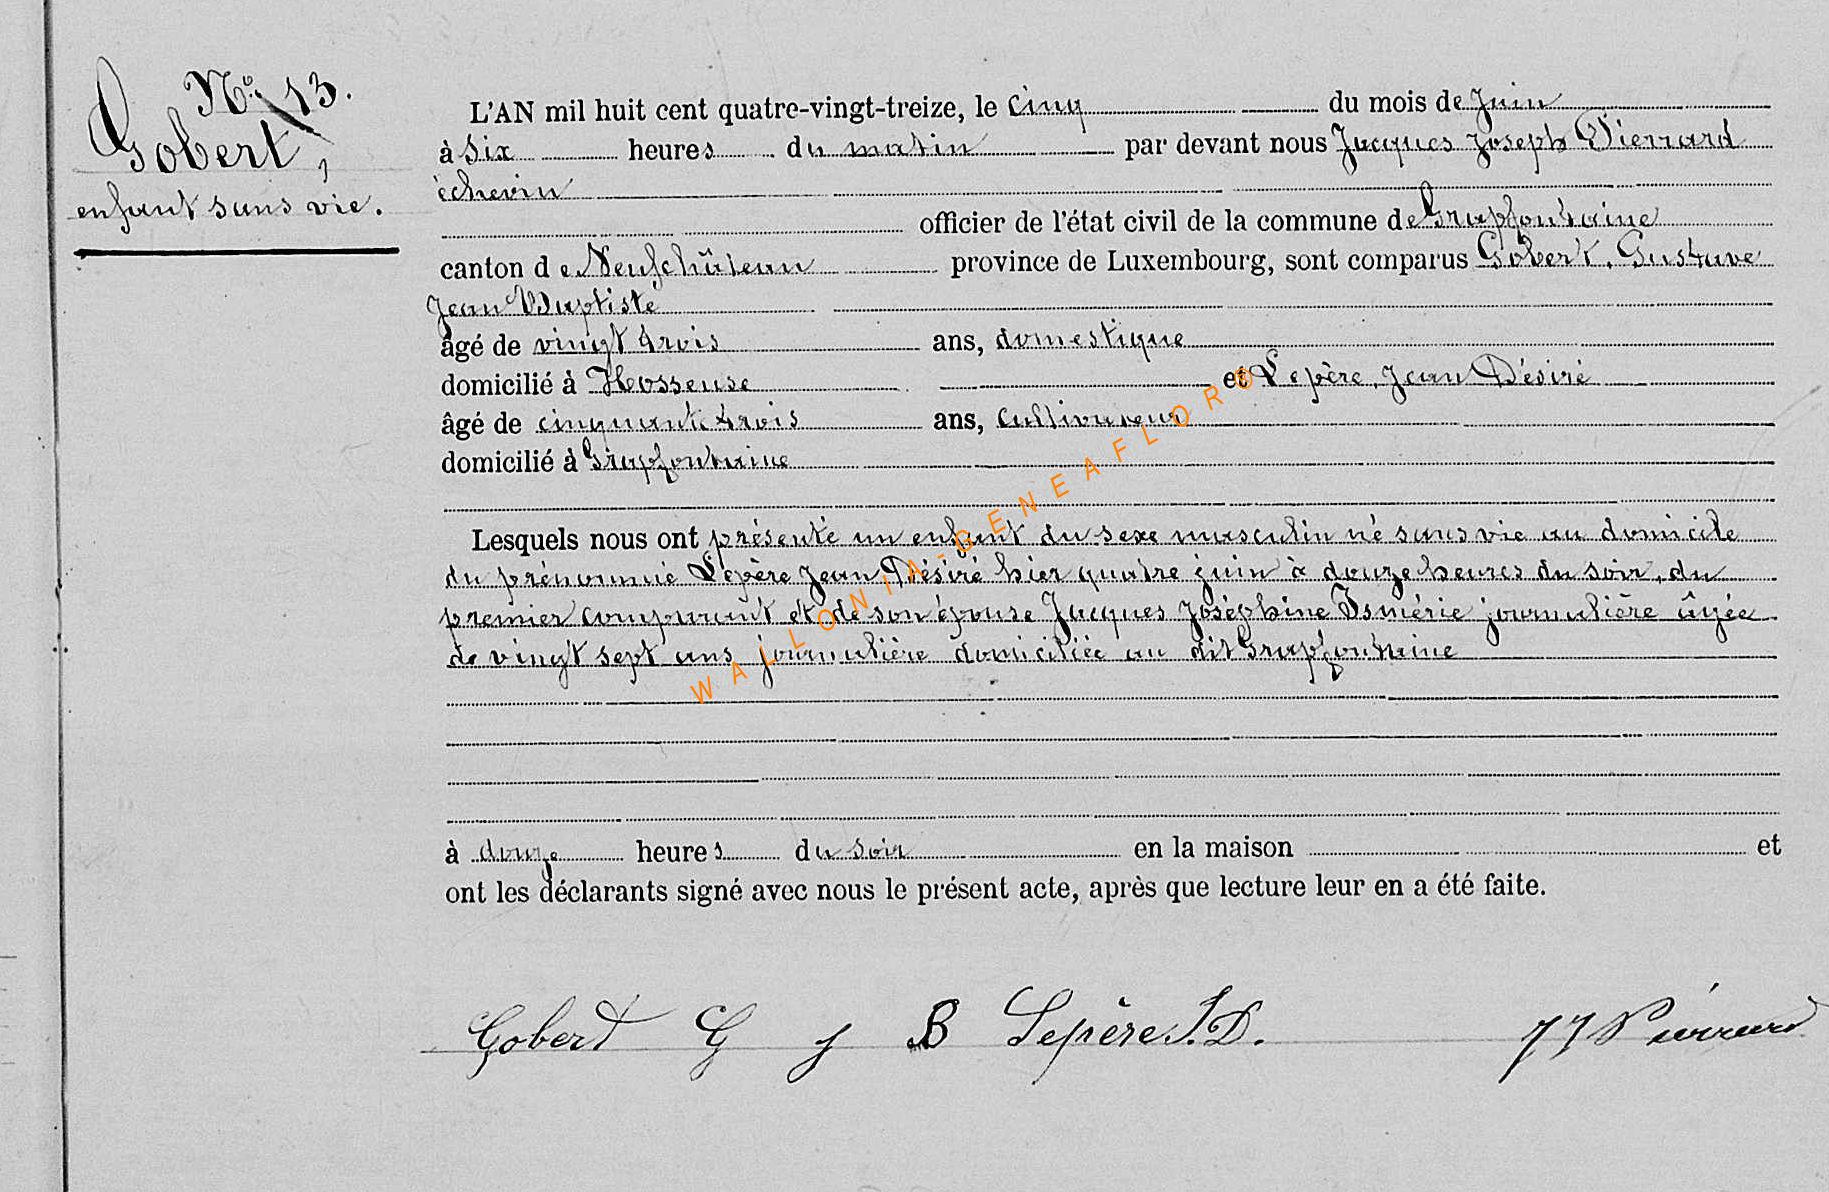 N° 13.
Gobert,
enfant sans vie.
L'AN mil huit cent quatre-vingt-treize, le cinq du mois de Juin
à six heures du matin par devant nous Jacques Joseph Pierrard
échevin
officier de l'état civil de la commune de Grapfontaine
canton de Neufchâteau province de Luxembourg, sont comparus Gobert, Gustave
Jean Baptiste
âgé de vingt trois ans, domestique
domicilié à Hosseuse et Lepère, Jean Désiré
âgé de cinquante trois ans, cultivateur
domicilié à Grapfontaine
Lesquels nous ont présenté un enfant du sexe masculin né sans vie au domicile
du prénommé Lepère Jean Désiré hier quatre juin à douze heures du soir, du
premier comparant et de son épouse Jacques Joséphine Ismérie journalière âgée
de vingt sept ans journalière domiciliée au dit Grapfontaine
à douze heures du soir en la maison et
ont les déclarants signé avec nous le présent acte, après que lecture leur en a été faite.
Gobert G J B Lepère J. D. JJ Pierrard
WALLONIA-GENEAFLORE